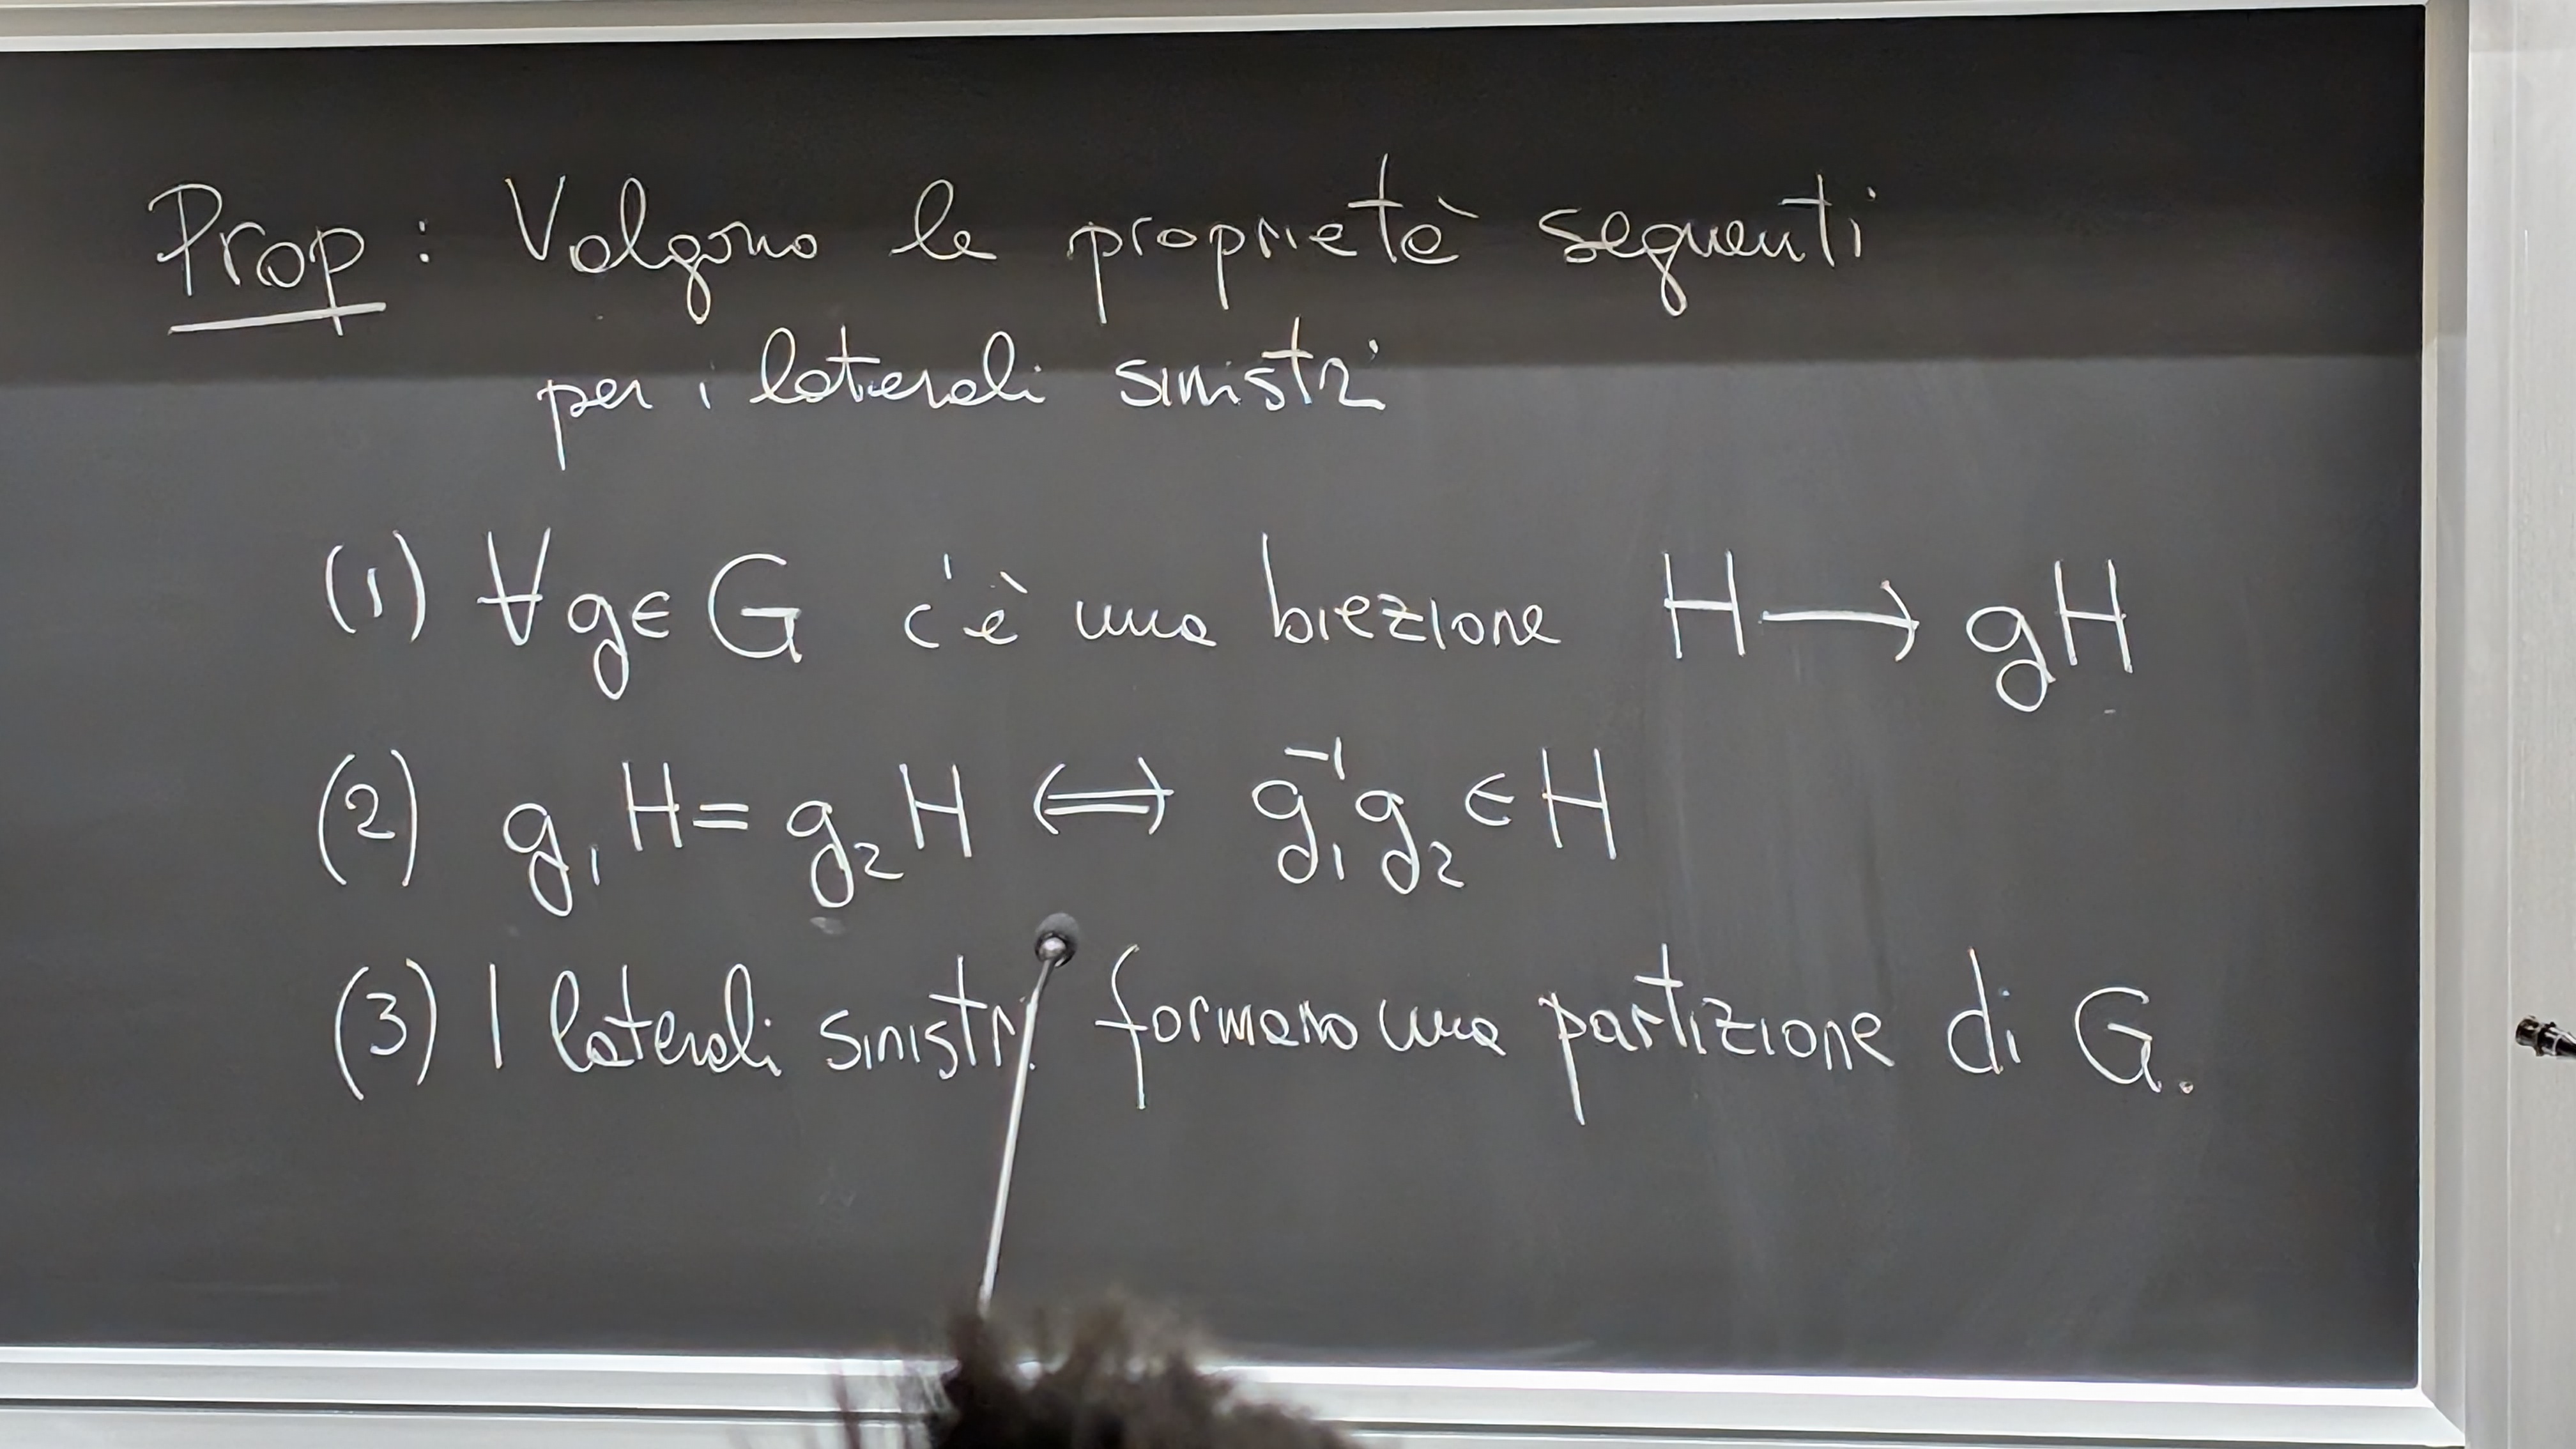 Prop: Valgono le proprietà seguenti
per i laterali sinistri
(1) ∀g∈G c'è una biezione H → gH
(2) g₁H = g₂H ⟺ g₁⁻¹g₂ ∈ H
(3) I laterali sinistri formano una partizione di G.